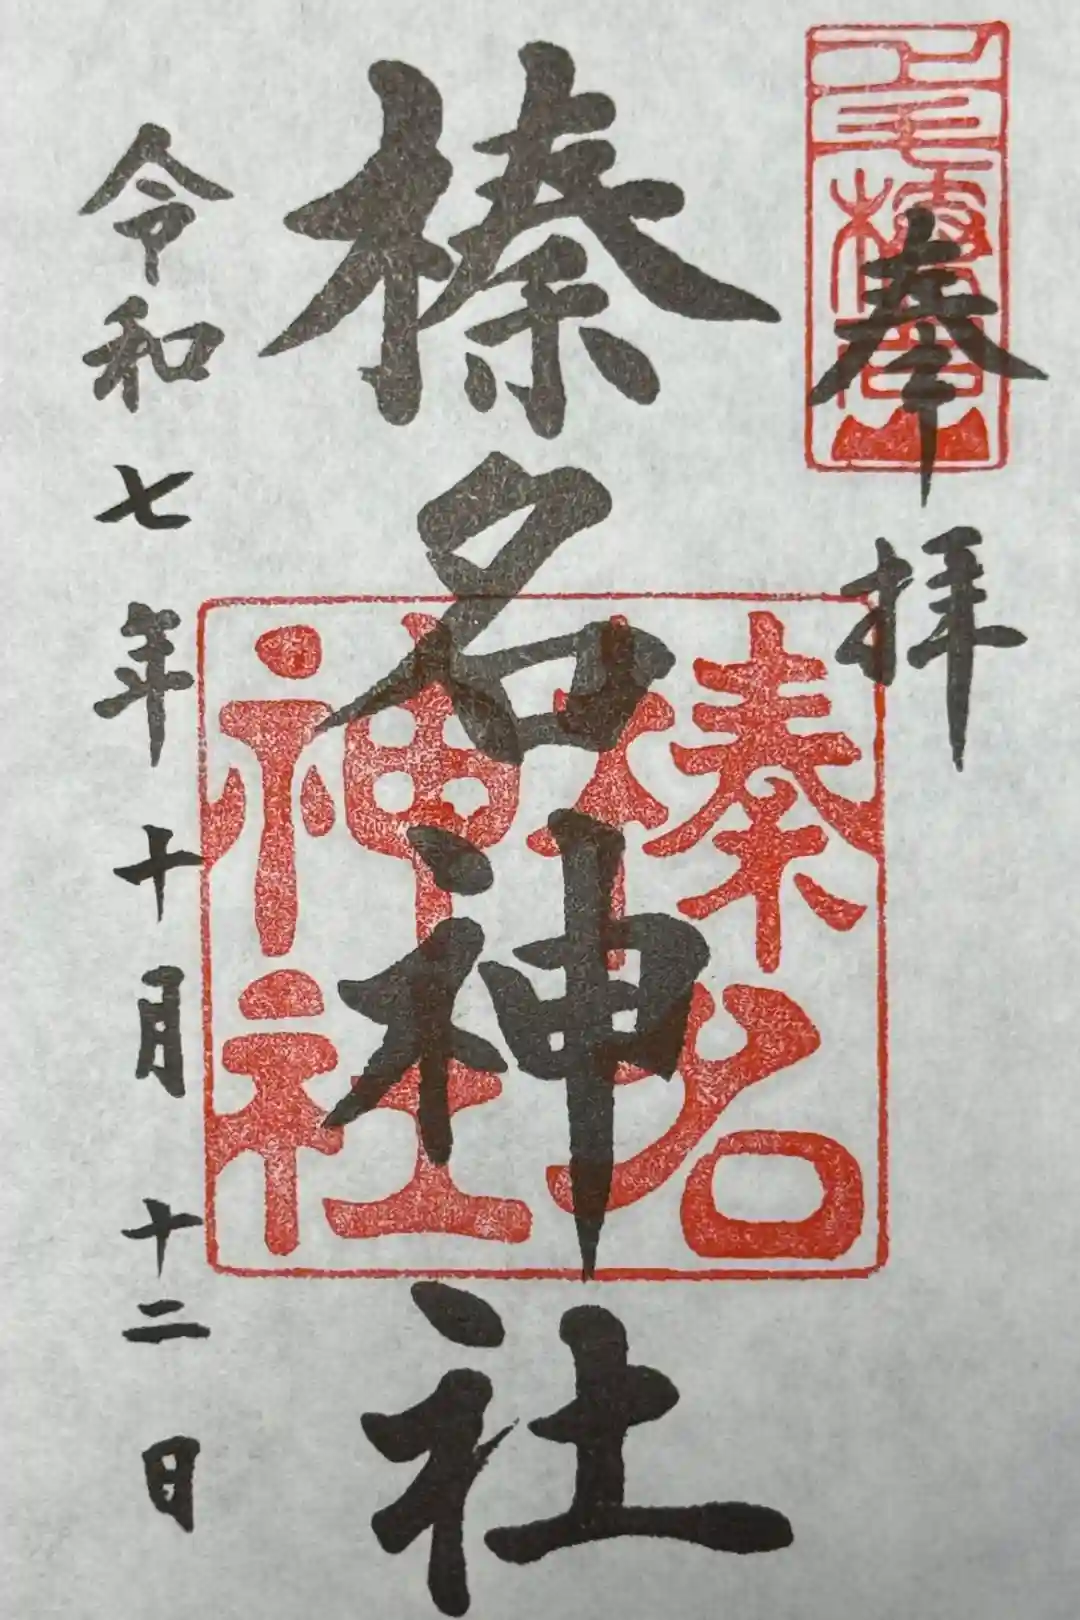 奉拝
榛名神社
榛名
神社
令和七年十月十二日